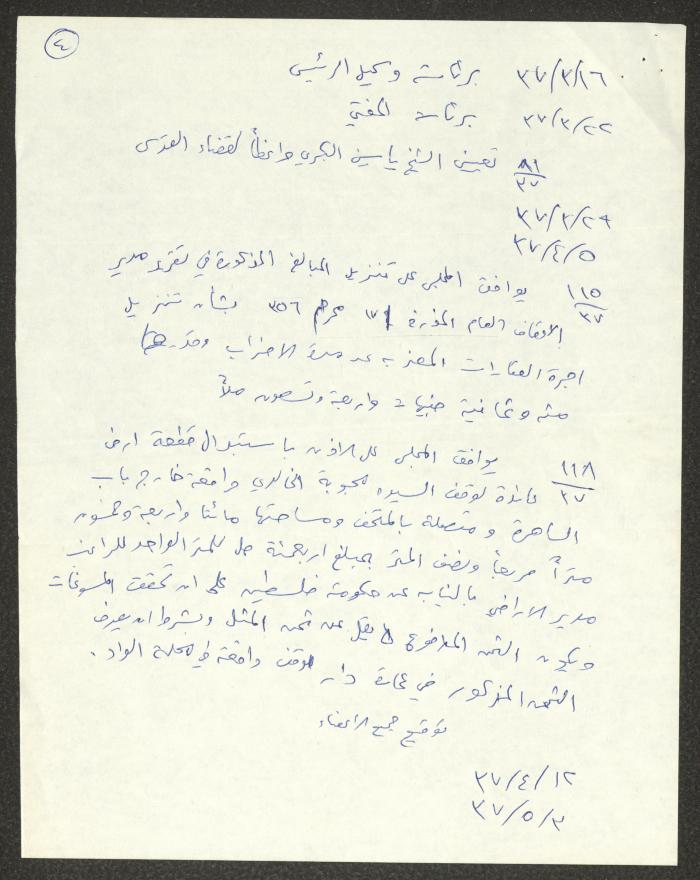 ٤
٣٧/٣/١٦ برئاسة وكيل الرئيس
٣٧/٣/٢٢ برئاسة المفتي
٨١/٣٧ تعيين الشيخ ياسين البكري واعظاً لقضاء القدس
٣٧/٣/٢٩
٣٧/٤/٥
١١٥/٣٧ يوافق المجلس على تنزيل المبالغ المذكورة في تقرير مدير
الاوقاف العام المؤرخ ١٧ محرم ٣٥٦ بشأن تنزيل
اجرة العقارات المضربه عن مدة الاضراب وقدرها
مئة وثمانية جنيهات واربعة وتسعون ملاً
١١٨/٣٧ يوافق المجلس على الاذن باستبدال قطعة ارض
عائدة لوقف السيده محبوبة الخالدي واقعة خارج باب
الساهرة ومتصلة بالمتحف ومساحتها مائتا واربعة وخمسون
متراً مربعاً ونصف المتر بمبلغ اربعمئة مل للمتر الواحد للراغب
مدير الاراضي بالنيابه عن حكومة فلسطين على ان تحقق المسوغات
ويكون الثمن المدفوع لا يقل عن ثمن المثل وبشرط ان يصرف
الثمن المذكور في عمارة دار الوقف واقعة في محلة الواد.
توقيع جميع الاعضاء
٣٧/٤/١٢
٣٧/٥/٣